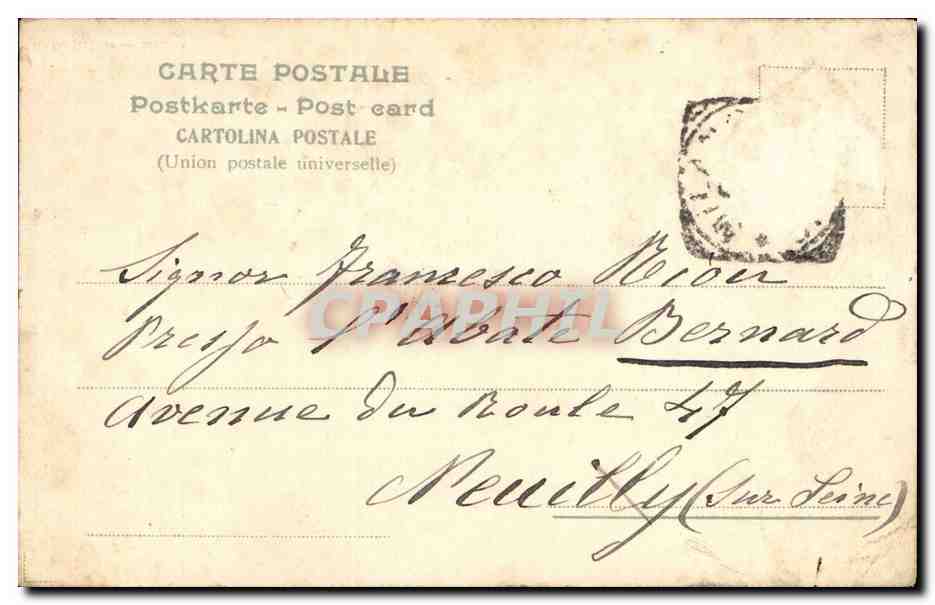 CARTE POSTALE
Postkarte - Post card
CARTOLINA POSTALE
(Union postale universelle)
MIL
Signor Francesco
Presso l'Abate Bernard
CPAPHIL
Avenue du Roule 47
Neuilly (sur Seine)